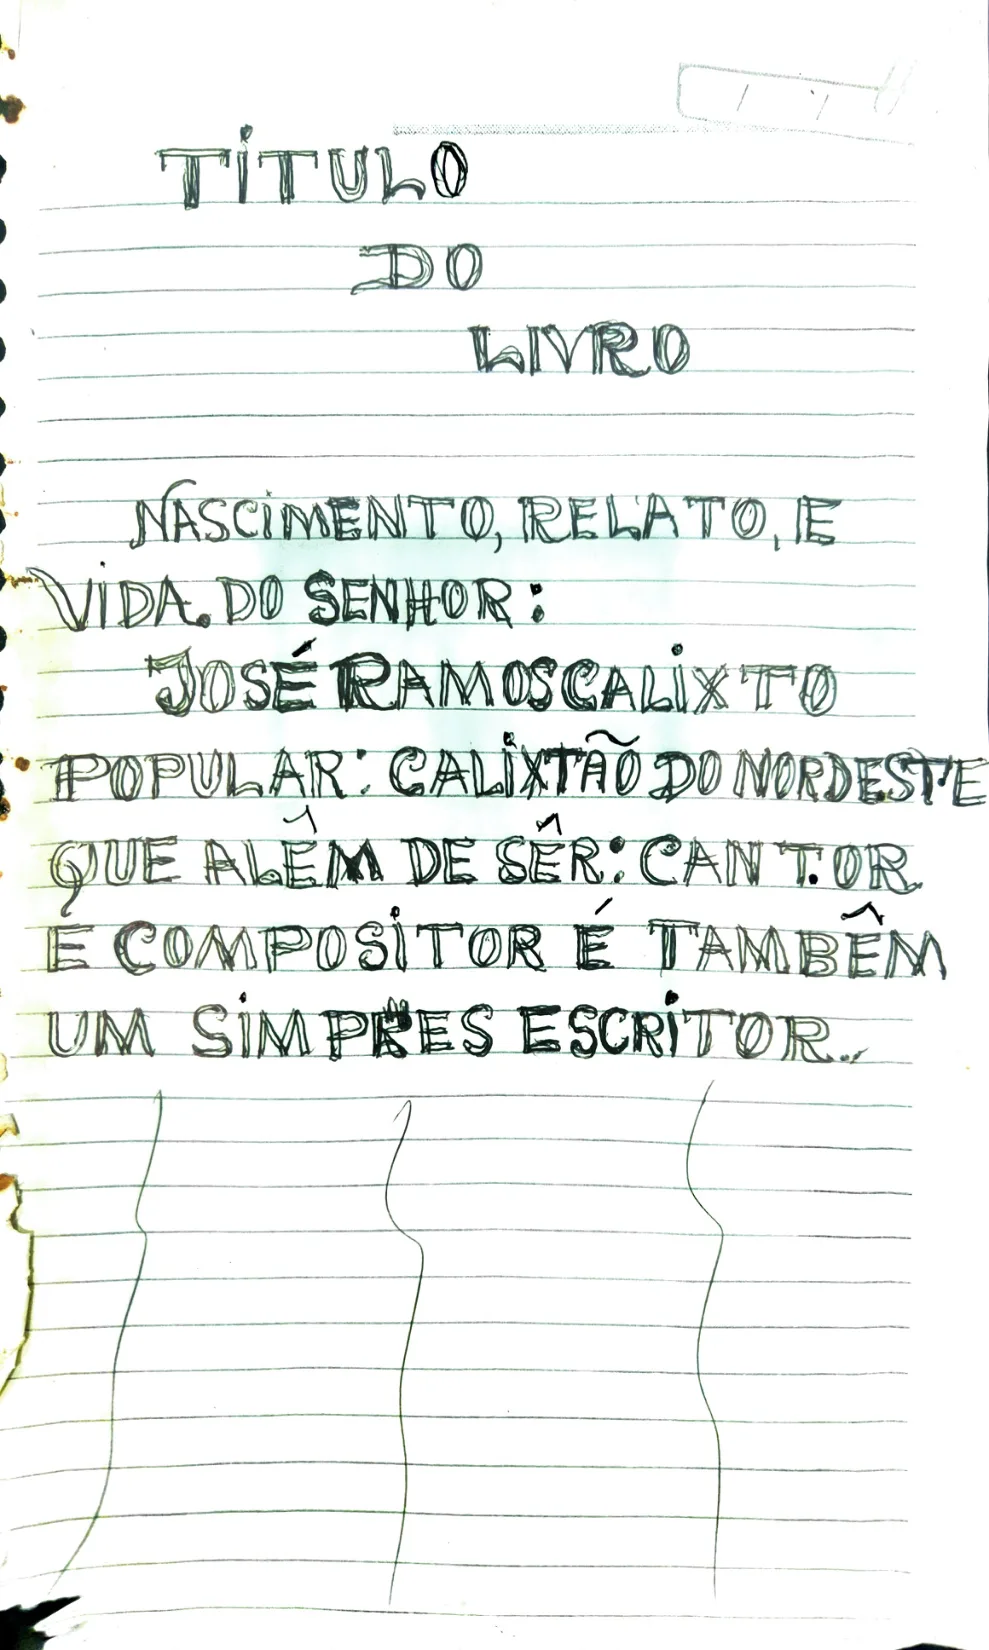 TÍTULO
DO
LIVRO
NASCIMENTO, RELATO, E
VIDA. DO SENHOR:
JOSÉ RAMOS CALIXTO
POPULAR: CALIXTÃO DO NORDESTE
QUE ALÊM DE SÊR: CANTOR
E COMPOSITOR É TAMBÊM
UM SIMPRES ESCRITOR..